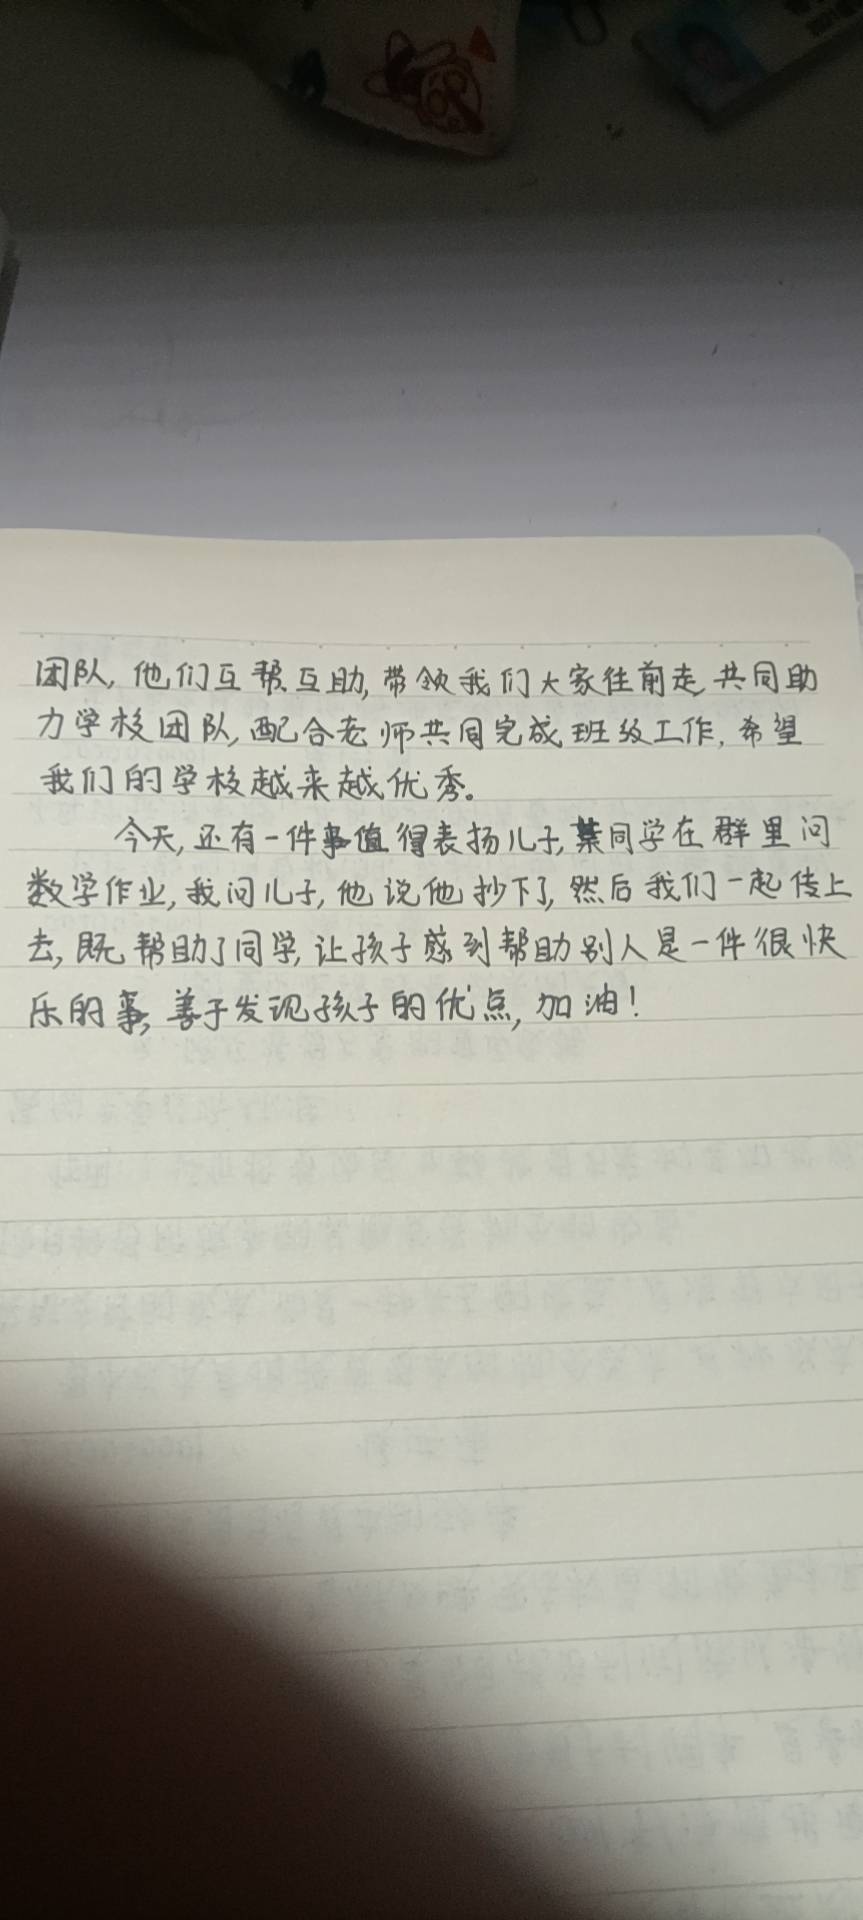 团队,他们互帮互助,带领我们大家往前走,共同助
力学校团队,配合老师共同完成班级工作,希望
我们的学校越来越优秀。
今天,还有一件事值得表扬儿子,某同学在群里问
数学作业,我问儿子,他说他抄下了,然后我们一起传上
去,既帮助了同学,让孩子感到帮助别人是一件很快
乐的事,善于发现孩子的优点,加油!